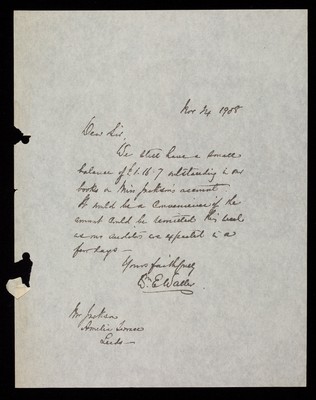 Nov 24 1908
Dear Sir,
We still have a small
balance of £1.16.7 outstanding in our
books on Miss Jackson's account.
It would be a convenience if the
amount could be remitted this week
as our auditors are expected in a
few days —
Yours faithfully
E Waller
Mr Jackson
Amelia Terrace
Leeds —